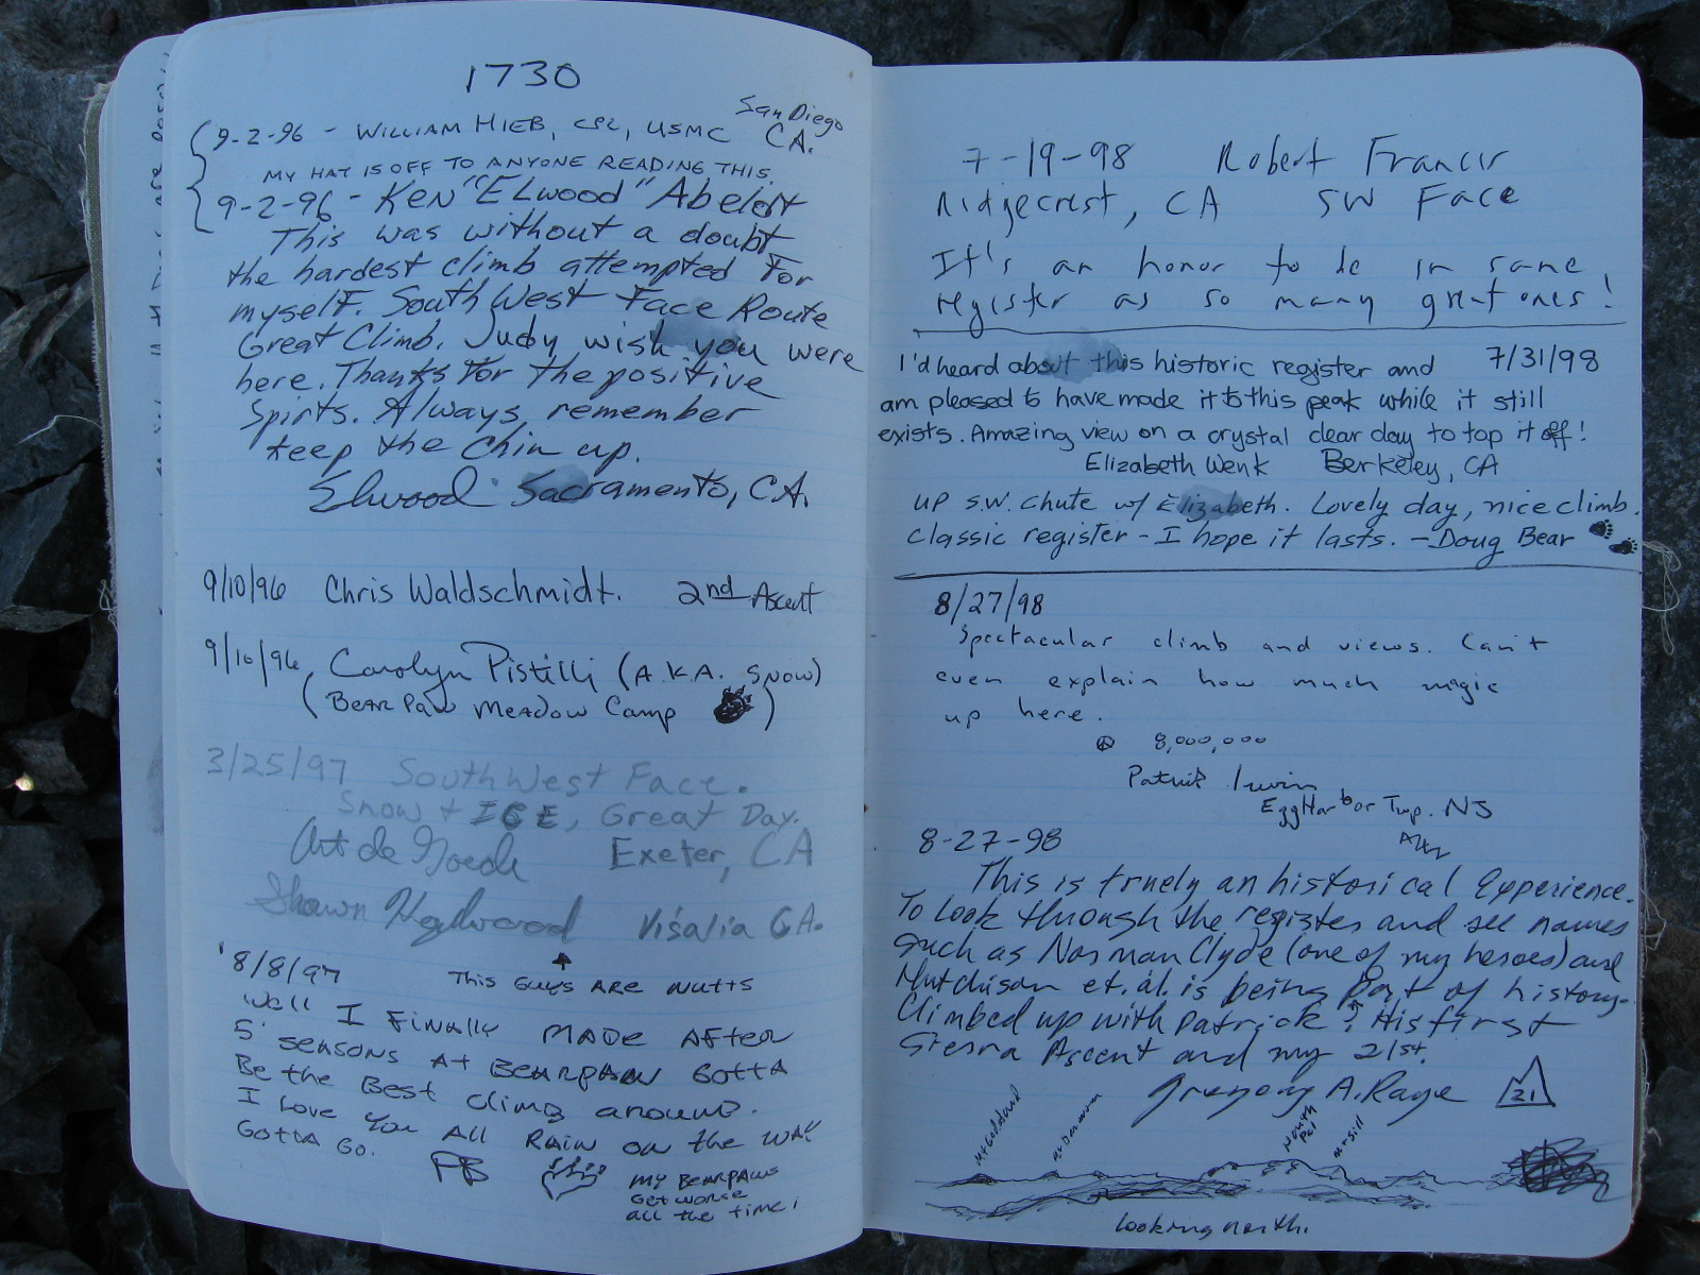 1730
9-2-96 - WILLIAM HIEB, CPL, USMC San Diego CA.
MY HAT IS OFF TO ANYONE READING THIS.
9-2-96 - Ken "ELwood" Abelört
This was without a doubt
the hardest climb attempted For
myself. South West Face Route
Great Climb. Judy wish you were
here. Thanks for the positive
Spirts. Always remember
keep the Chin up.
Elwood Sacramento, CA.
9/10/96 Chris Waldschmidt. 2nd Ascent
9/10/96, Carolyn Pistilli (A.K.A. Snow)
(Bear Paw Meadow Camp )
3/25/97 South West Face.
Snow + ICE, Great Day.
Art de Goede Exeter, CA
Shawn Visalia CA.
8/8/97 This Guys ARE NUTTS
Well I Finally MADE AFter
5 seasons At BEARPAW GOTTA
Be the Best climb around.
I Love You All RAIN on the WAY
GOTTA GO. PB
MY BEARPAWS
Get worse
all the time!
7-19-98 Robert Francis
Ridgecrest, CA SW Face
It's an honor to be in same
register as so many great ones!
I'd heard about this historic register and 7/31/98
am pleased to have made it to this peak while it still
exists. Amazing view on a crystal clear day to top it off!
Elizabeth Wenk Berkeley, CA
up S.W. Chute w/ Elizabeth. Lovely day, nice climb.
Classic register - I hope it lasts. - Doug Bear
8/27/98
Spectacular climb and views. Can't
even explain how much magic
up here.
8,000,000
Patrick Irwin
Egg Harbor Twp. NJ
8-27-98
This is truely an historical Experience.
To look through the register and see names
such as Norman Clyde (one of my heroes) and
Hutchison et. al. is being Part of history.
Climbed up with Patrick; His first
Sierra Ascent and my 21st.
Gregory A. Rage 21
Mt Goddard
North Pal
Mt Sill
looking north.